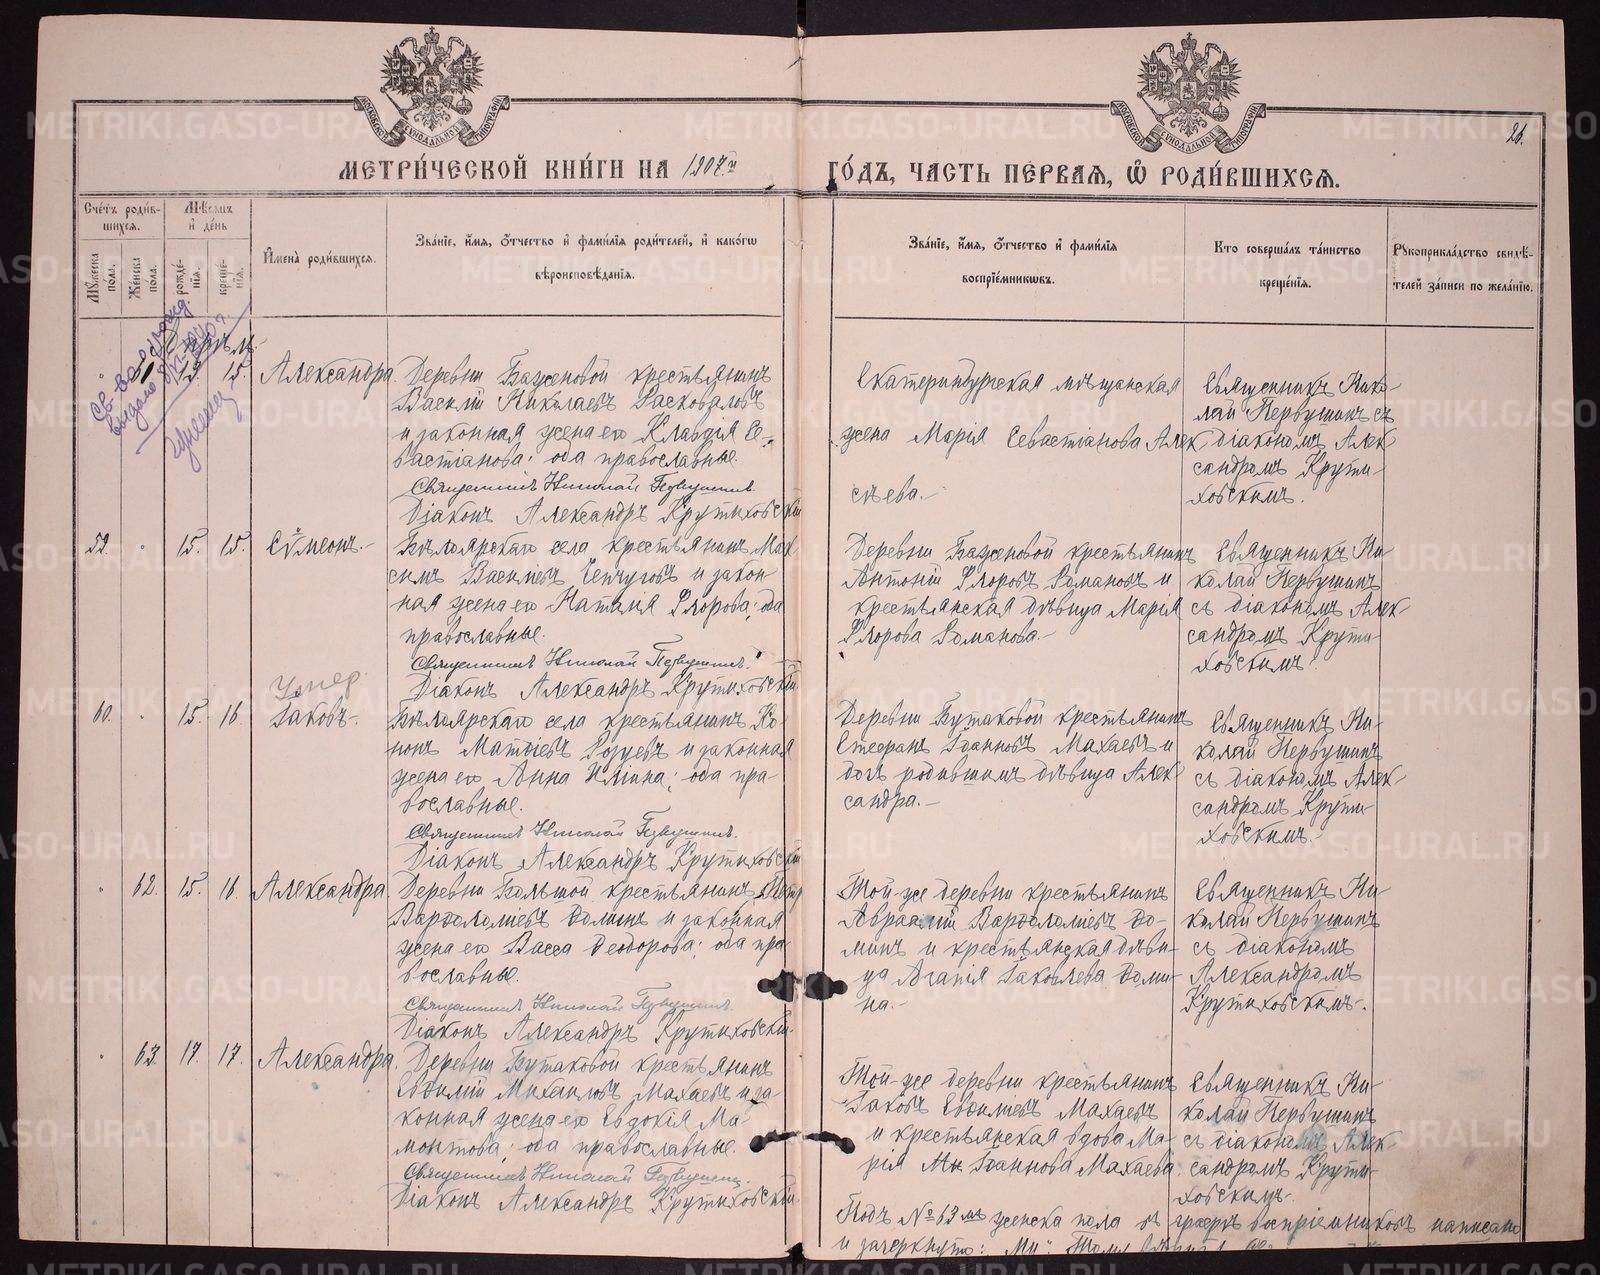 26.
МЕТРИ́ЧЕСКОЙ КНИ́ГИ НА 1907й ГО́ДЪ, ЧАСТЬ ПЕ́РВАЯ, Ѡ҆ РОДИ́ВШИХСЯ.
Сче́тъ роди́вшихся.
Мѣ́сяцъ и҆ де́нь
Му́жеска по́ла.
Же́нска по́ла.
рожде́нїя.
креще́нїя.
И҆мена̀ роди́вшихся.
Зва́нїе, и҆́мя, ѻ҆́тчество и҆ фами́лїя роди́телей, и҆ како́гѡ
вѣроисповѣ́данїя.
Зва́нїе, и҆́мя, ѻ҆́тчество и҆ фами́лїя
воспрїе́мникѡвъ.
Кто̀ соверша́лъ та́инство
креще́нїя.
Рукоприкла́дство свидѣ́-
телей за́писи по жела́нїю.
15.
Александра.
Деревни Баженовой крестьянинъ
Василій Николаевъ Расковаловъ
и законная жена его Клавдія Се-
вастіанова; оба православные.
Священникъ Николай Первушинъ
Діаконъ Александръ Крутиховскій
Екатеринбургская мѣщанская
жена Марія Севастіанова Алек
сѣева.-
Священникъ Нико-
лай Первушинъ съ
діакономъ Алек
сандромъ Крути-
ховскимъ.
59. " 15. 15. Сѵмеонъ.-
Бѣлоярскаго села крестьянинъ Мак
симъ Васильевъ Чепчуговъ и закон
ная жена его Наталія Флорова; оба
православные.
Священникъ Николай Первушинъ.
Діаконъ Александръ Крутиховскій
Деревни Баженовой крестьянинъ
Антоній Флоровъ Романовъ и
крестьянская дѣвица Марія
Флорова Романова.-
Священникъ Ни-
колай Первушинъ
съ діакономъ Алек-
сандромъ Крути-
ховскимъ
умер
60. " 15. 16 Іаковъ-.
Бѣлоярскаго села крестьянинъ Ко-
нонъ Матѳіевъ и законная
жена его Анна Иліина; оба пра-
вославные.
Священникъ Николай Первушинъ.
Діаконъ Александръ Крутиховскій
Деревни Бутаковой крестьянинъ
Стефанъ Іоанновъ Махаевъ и
дочь родившимъ дѣвица Алек
сандра.-
Священникъ Ни-
колай Первушинъ
съ діакономъ Алек-
сандромъ Крути-
ховскимъ.-
" 62. 15. 16 Александра.
Деревни Большой крестьянинъ Петр
Варѳоломіевъ Доминъ и законная
жена его Васса Ѳеодорова; оба пра-
вославные.
Священникъ Николай Первушинъ.
Діаконъ Александръ Крутиховскій.
Той-же деревни крестьянинъ
Авраамій Варѳоломіевъ До-
минъ и крестьянская дѣви-
ца Агапія Іаковлева Доми-
на.-
Священникъ Ни-
колай Первушинъ
съ діакономъ
Александромъ
Крутиховскимъ-.
" 63. 17. 17. Александра.
Деревни Бутаковой крестьянинъ
Евѳимій Михаиловъ Махаевъ и за-
конная жена его Евдокія Ма-
монтова; оба православные.
Священникъ Николай Первушинъ.
Діаконъ Александръ Крутиховскій
Той-же деревни крестьянинъ
Іаковъ Евѳиміевъ Махаевъ
и крестьянская вдова Ма-
рія Ми Іоаннова Махаева.
Священникъ Ни-
колай Первушинъ
съ діакономъ Алек-
сандромъ Крути-
ховскимъ-.
Подъ №63мъ женска пола въ графѣ воспріемниковъ написано
и зачеркнуто: "Ми".